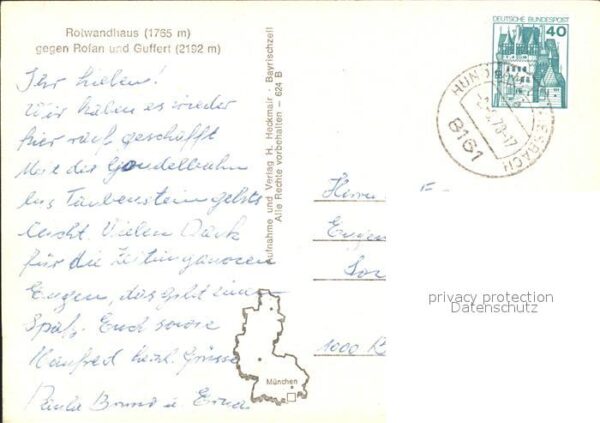 Rotwandhaus (1765 m)
gegen Rofan und Guffert (2192 m)
Ihr Lieben!
Wir haben es wieder
hier rauf geschafft
Mit die Gondelbahn
bis Taubenstein gehts
leicht. Vielen Dank
für die
Eugen, das geht zum
Spaß. Euch sowie
Manfred herzl. Grüsse
Paula Bruno u. Erna
Aufnahme und Verlag H. Heckmair - Bayrischzell
Alle Rechte vorbehalten - 624 B
München
DEUTSCHE BUNDESPOST
40
8161
Herrn
Eugen
1000
privacy protection
Datenschutz